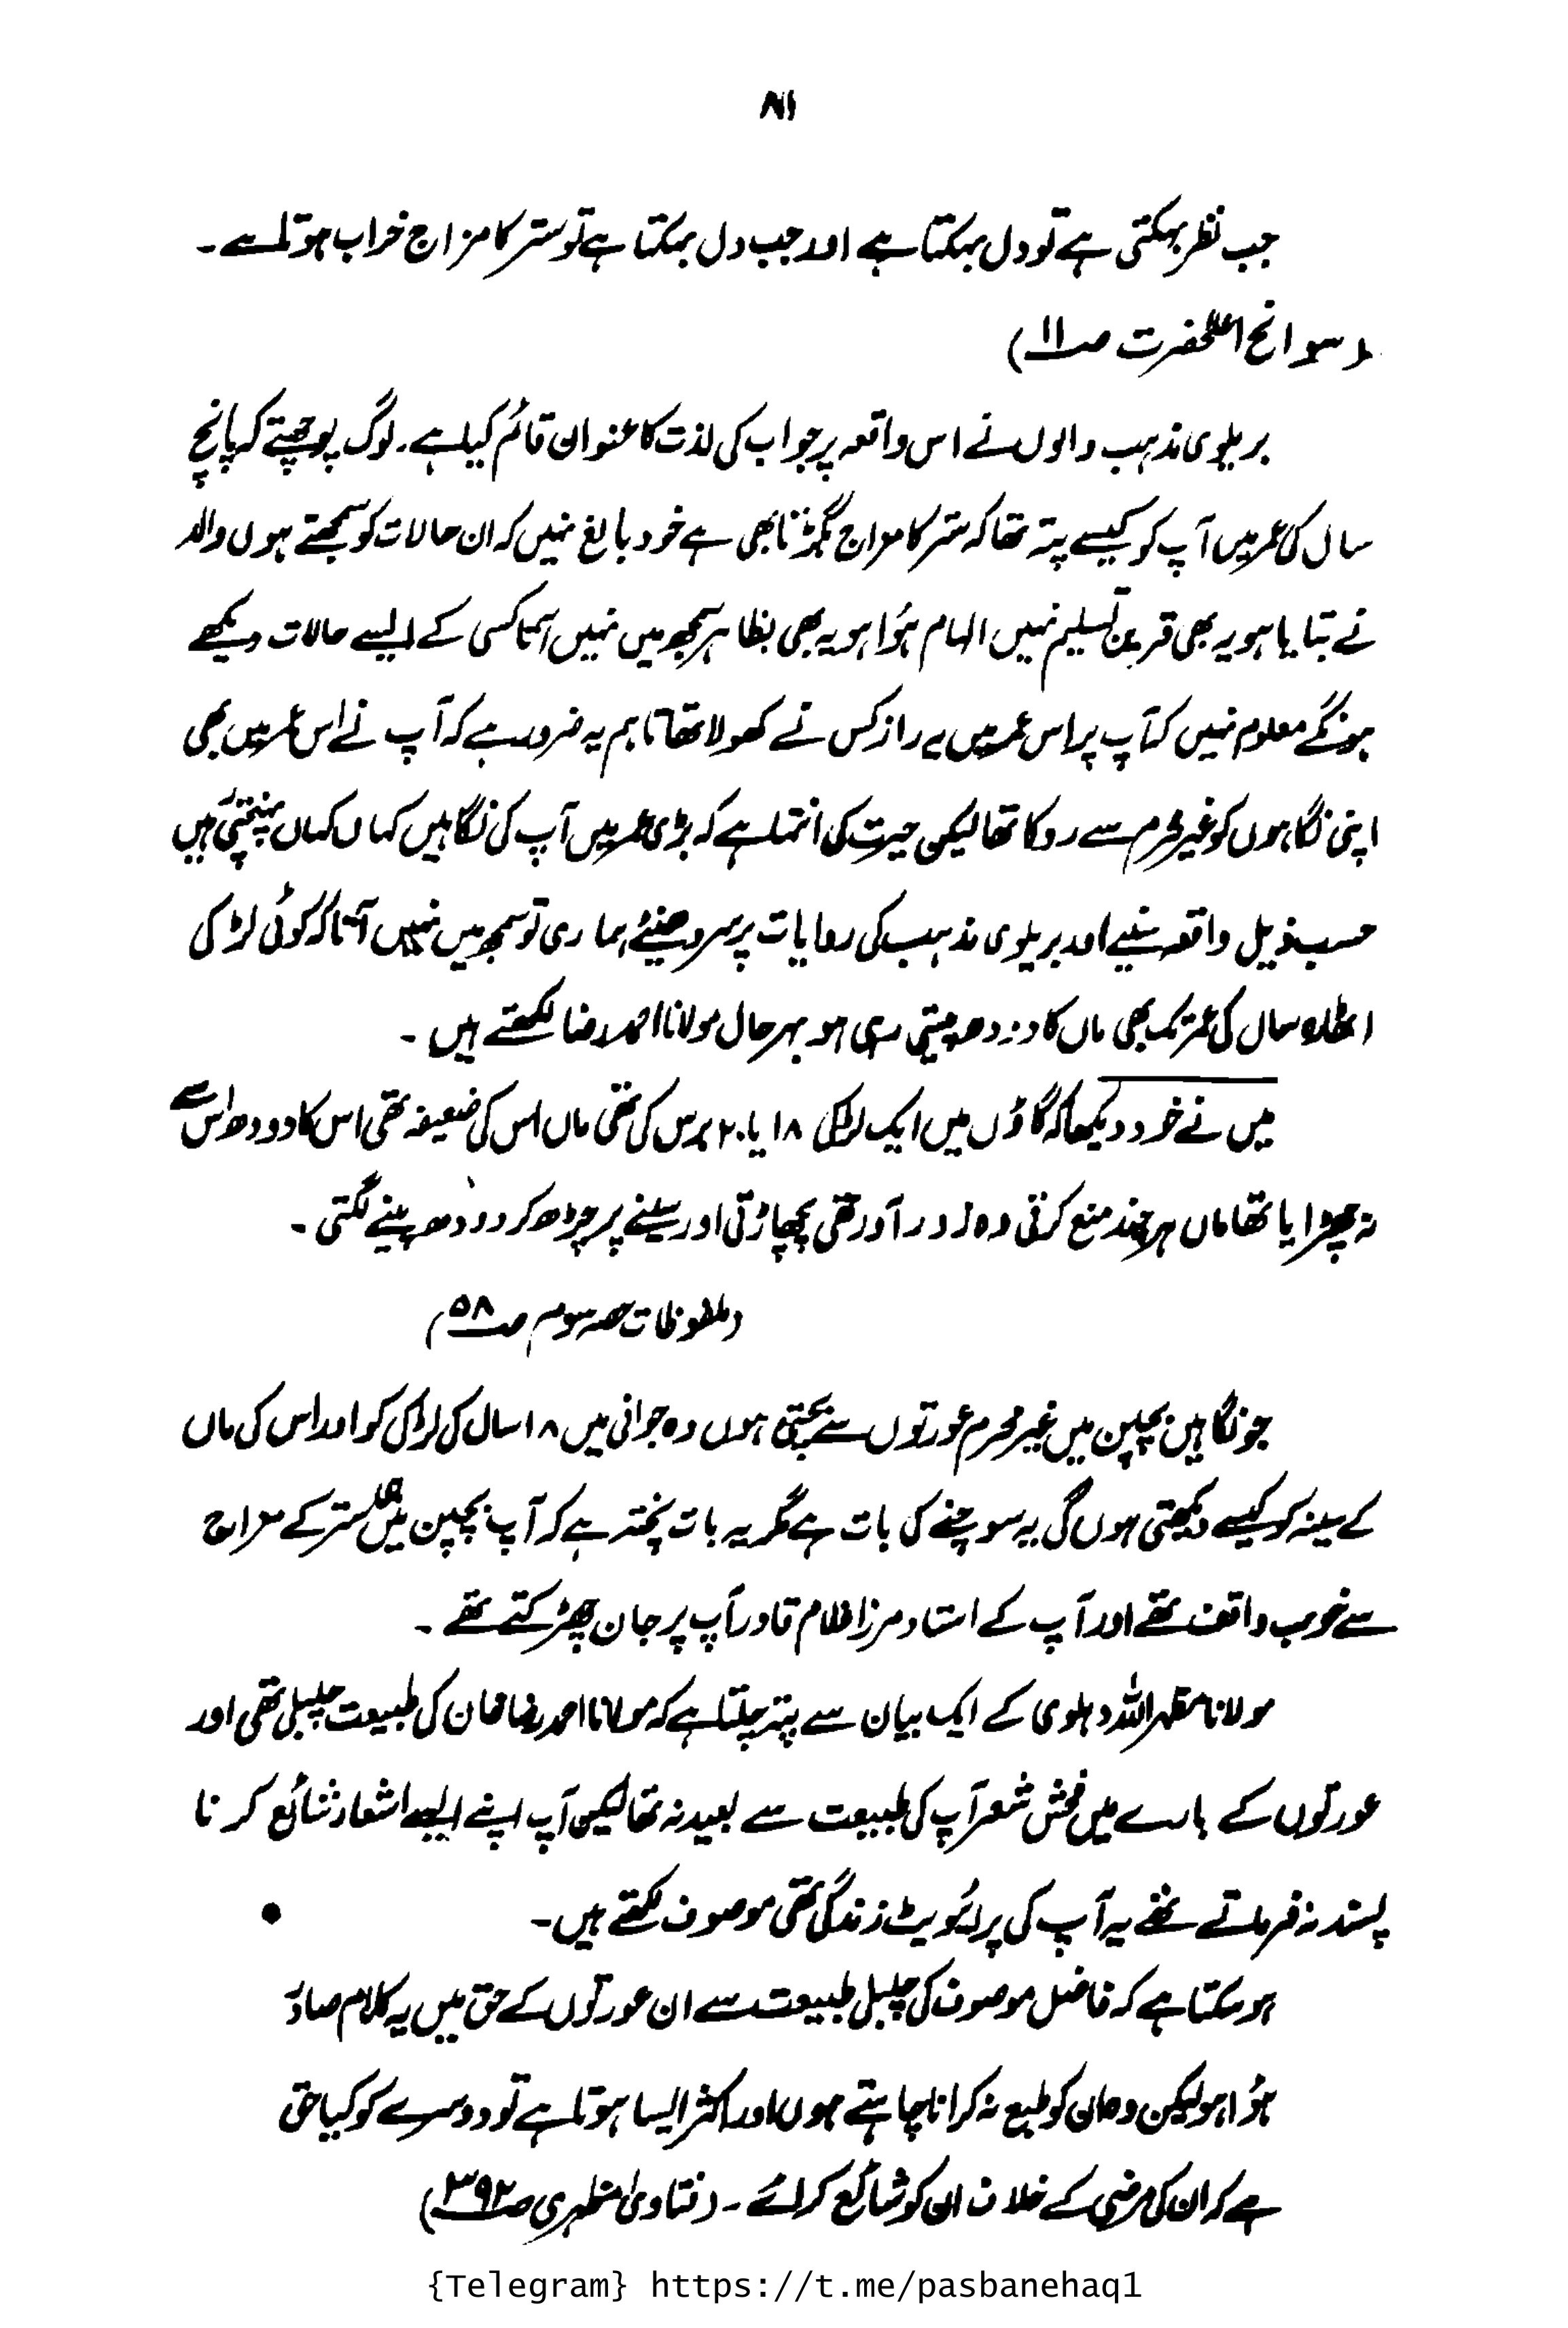 ۱۸۱
جب نظر بہکتی ہے تو دل بہکتا ہے اور جب دل بہکتا ہے تو ستر کا مزاج خراب ہوتا ہے ۔
(سوانح اعلٰحضرت صـ۱۱)
بریلوی مذہب والوں نے اس واقعہ پر جواب کی لذت کا عنوان قائم کیا ہے ۔ لوگ پوچھتے کہ پانچ
سال کی عمر میں آپ کو کیسے پتہ تھا کہ ستر کا مزاج بگڑتا بھی ہے خود بالغ نہیں کہ ان حالات کو سمجھتے ہوں والد
نے بتایا ہو یہ بھی قرین تسلیم نہیں الہام ہُوا ہو یہ بھی بظاہر سمجھ میں نہیں آتا کسی کے ایسے حالات دیکھے
ہونگے معلوم نہیں کہ آپ پر اس عمر میں یہ راز کس نے کھولا تھا تاہم یہ ضرور ہے کہ آپ نے اس عمر میں بھی
اپنی نگاہوں کو غیر محرم سے روکا تھا لیکن حیرت کی انتہا ہے کہ بڑی عمر میں آپ کی نگاہیں کہاں کہاں پہنچتی ہیں
حسب ذیل واقعہ سنیے اور بریلوی مذہب کی روایات پر سر دھنیئے ہماری تو سمجھ میں نہیں آتا کہ کوئی لڑکی
اٹھارہ سال کی عمر تک بھی ماں کا دودھ پیتی رہی ہو بہرحال مولانا احمد رضا لکھتے ہیں ۔
میں نے خود دیکھا کہ گاؤں میں ایک لڑکی ۱۸ یا ۲۰ برس کی تھی ماں اس کی ضعیفہ تھی اس کا دودھ اس سے
نہ چھڑایا تھا ماں ہر چند منع کرتی وہ زور آور تھی پچھاڑتی اور سینے پر چڑھ کر دودھ پینے لگتی ۔
(ملفوظات حصہ سوم صـ۵۸)
جو نگاہیں بچپن میں غیر محرم عورتوں سے بچتی ہوں وہ جوانی میں ۱۸ سال کی لڑکی کو اور اس کی ماں
کے سینہ کو کیسے دیکھتی ہوں گی یہ سوچنے کی بات ہے مگر یہ بات پختہ ہے کہ آپ بچپن میں ہی ستر کے مزاج
سے خوب واقف تھے اور آپ کے استاد مرزا غلام قادر آپ پر جان چھڑکتے تھے ۔
مولانا مظہر اللہ دہلوی کے ایک بیان سے پتہ چلتا ہے کہ مولانا احمد رضا خان کی طبیعت چلبلی تھی اور
عورتوں کے بارے میں فحش شعر آپ کی طبیعت سے بعید نہ تھا لیکن آپ اپنے ایسے اشعار شائع کرنا
پسند نہ فرماتے تھے یہ آپ کی پرائیویٹ زندگی تھی موصوف لکھتے ہیں ۔
ہو سکتا ہے کہ فاضل موصوف کی چلبلی طبیعت سے ان عورتوں کے حق میں یہ کلام صادر
ہُوا ہو لیکن وہ ان کو طبع نہ کرانا چاہتے ہوں اور اکثر ایسا ہوتا ہے تو دوسرے کو کیا حق
ہے کہ ان کی مرضی کے خلاف ان کو شائع کرائے ۔ (فتاویٰ مظہری صـ۳۹۲)
{Telegram} https://t.me/pasbanehaq1